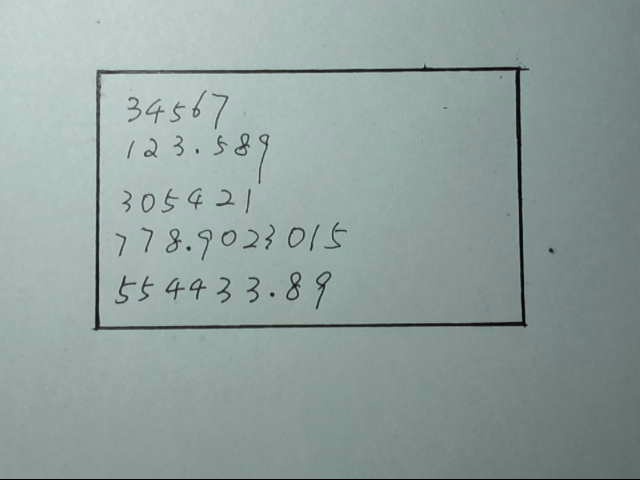 34567
123.589
305421
778.9023015
554433.89